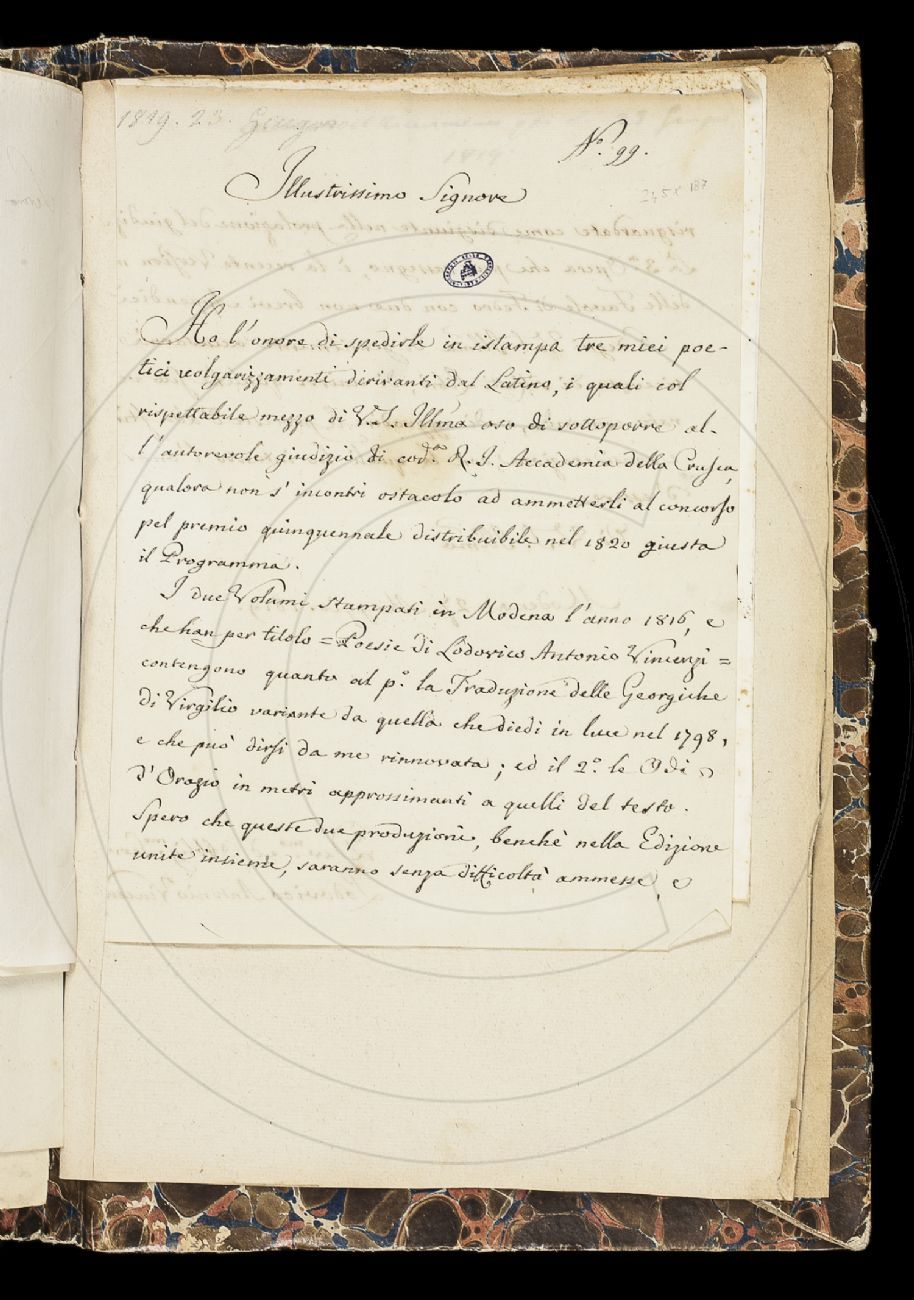 1819. 23. Giugno
N.º 99.
Illustrissimo Signore
245x 187
Ho l'onore di spedirle in istampa tre miei poe-
tici volgarizzamenti dirivanti dal Latino, i quali col
rispettabile mezzo di V.S. Illma oso di sottoporre al-
l'autorevole giudizio di cod.ta R. I. Accademia della Crusca,
qualora non s'incontri ostacolo ad ammetterli al concorso
pel premio quinquennale distribuibile nel 1820 giusta
il Programma.
I due Volumi stampati in Modena l'anno 1816, e
che han per titolo = Poesie di Lodovico Antonio Vincenzi =
contengono quanto al p.º la Traduzione delle Georgiche
di Virgilio variante da quella che diedi in luce nel 1798,
e che può dirsi da me rinnovata; ed il 2.º le Odi
d'Orazio in metri approssimanti a quelli del testo.
Spero che queste due produzioni, benchè nella Edizione
unite insieme, saranno senza difficoltà ammesse, e